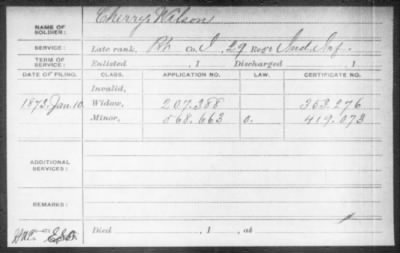 NAME OF SOLDIER: Cherry Wilson
SERVICE: Late rank, Pvt Co. I, 29 Reg't Ind. Inf.
TERM OF SERVICE: Enlisted , 1 Discharged , 1
DATE OF FILING. CLASS. APPLICATION NO. LAW. CERTIFICATE NO.
Invalid,
1873. Jan. 10. Widow, 207.388 353.276
Minor, 568.663 O. 419.073
ADDITIONAL SERVICES:
REMARKS:
Died , 1 , at